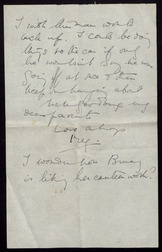 I wish this man would
buck up. I could be doing
this to the car if only
he wouldn't say he was
going at at once & then
keep me hanging about
here for doing my
dear parents
Love always
Reg.
I wonder how Bunny
is liking her canteen work?